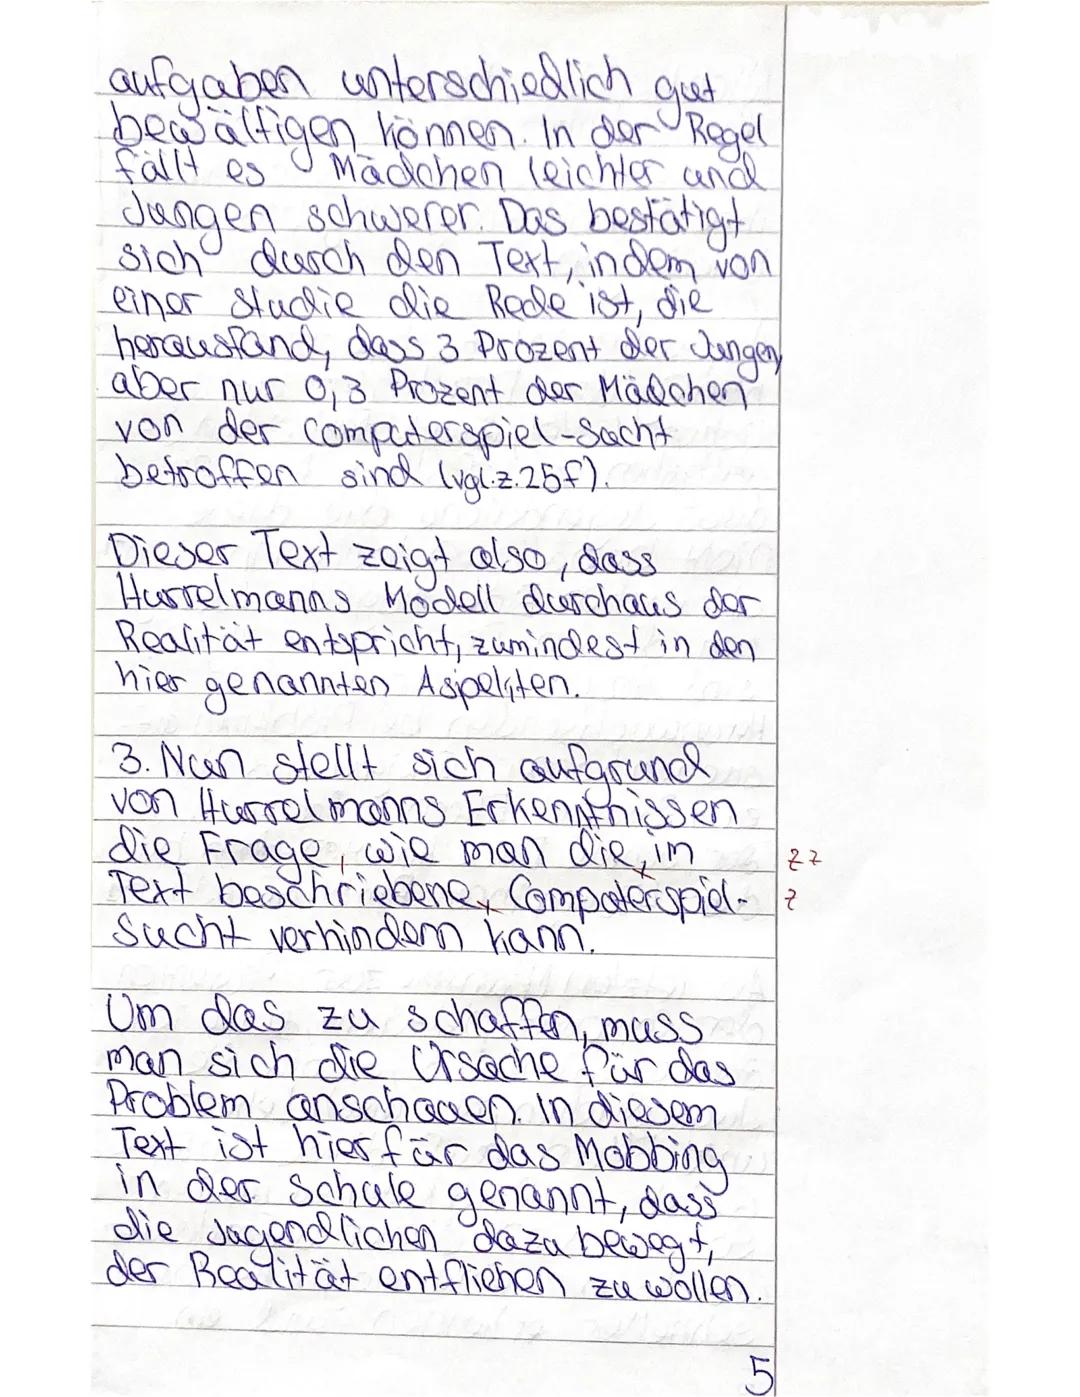 aufgaben unterschiedlich gut
bewältigen können. In der Regel
fällt es Mädchen leichter und
Jungen schwerer. Das bestätigt
sich durch den Text, indem von
einer Studie die Rede ist, die
herausfand, dass 3 Prozent der Jungen,
aber nur 0,3 Prozent der Mädchen
von der Computerspiel-Sucht
betroffen sind (vgl. z. 25f).
Dieser Text zeigt also, dass
Hurrelmanns Modell durchaus der
Realität entspricht, zumindest in den
hier genannten Aspekten.
3. Nun stellt sich aufgrund
von Hurrelmanns Erkenntnissen
die Frage, wie man die, im Z Z
Text beschriebene, Computerspiel- Z
Sucht verhindern kann.
Um das zu schaffen, muss
man sich die Ursache für das
Problem anschauen. In diesem
Text ist hierfür das Mobbing
in der Schule genannt, dass
die Jugendlichen dazu bewegt,
der Realität entfliehen zu wollen.
5